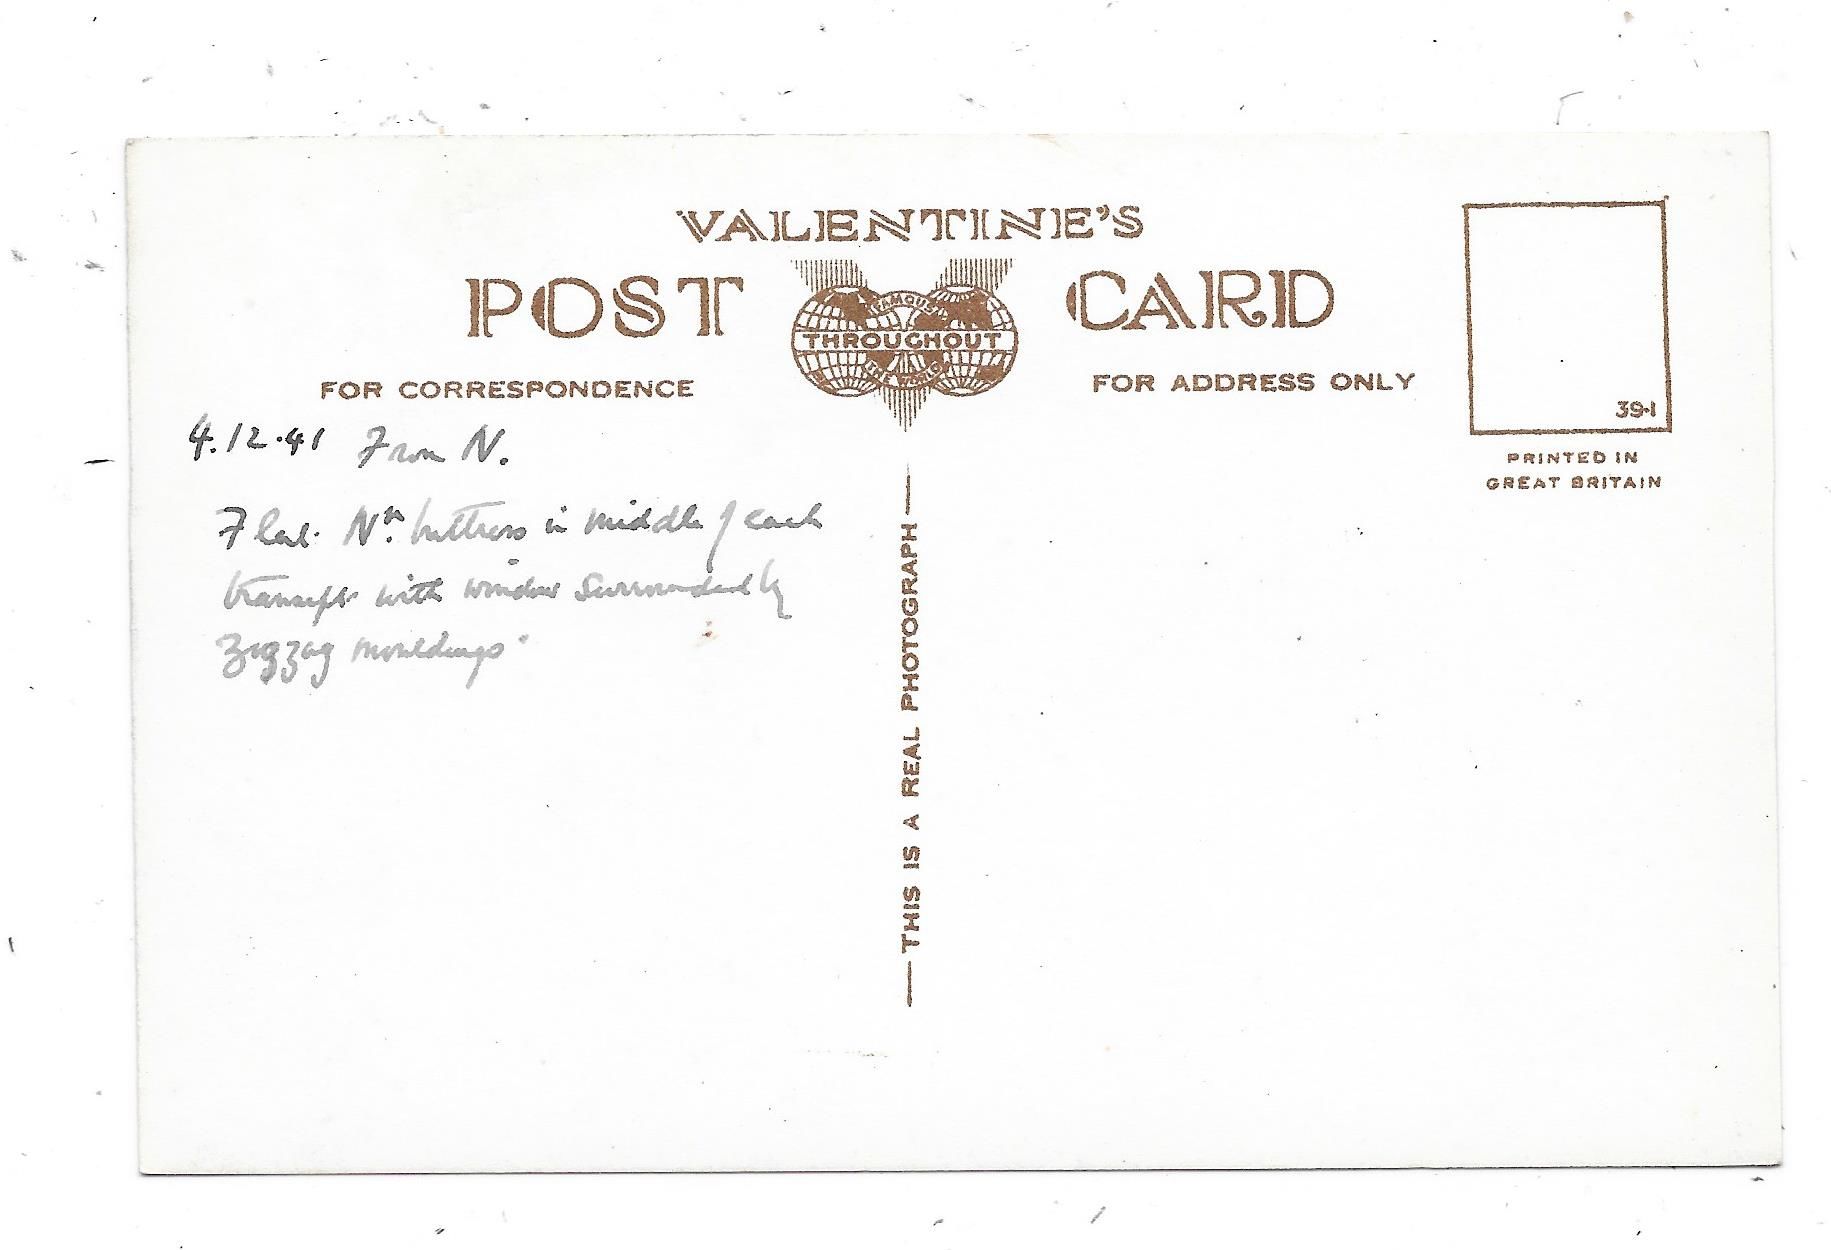 VALENTINE'S
POST CARD
FAMOUS
THROUGHOUT
THE WORLD
FOR CORRESPONDENCE
FOR ADDRESS ONLY
39-1
PRINTED IN
GREAT BRITAIN
4.12.41 From N.
Flat Nn. buttress in middle of each
transept with window surrounded by
zigzag mouldings.
THIS IS A REAL PHOTOGRAPH